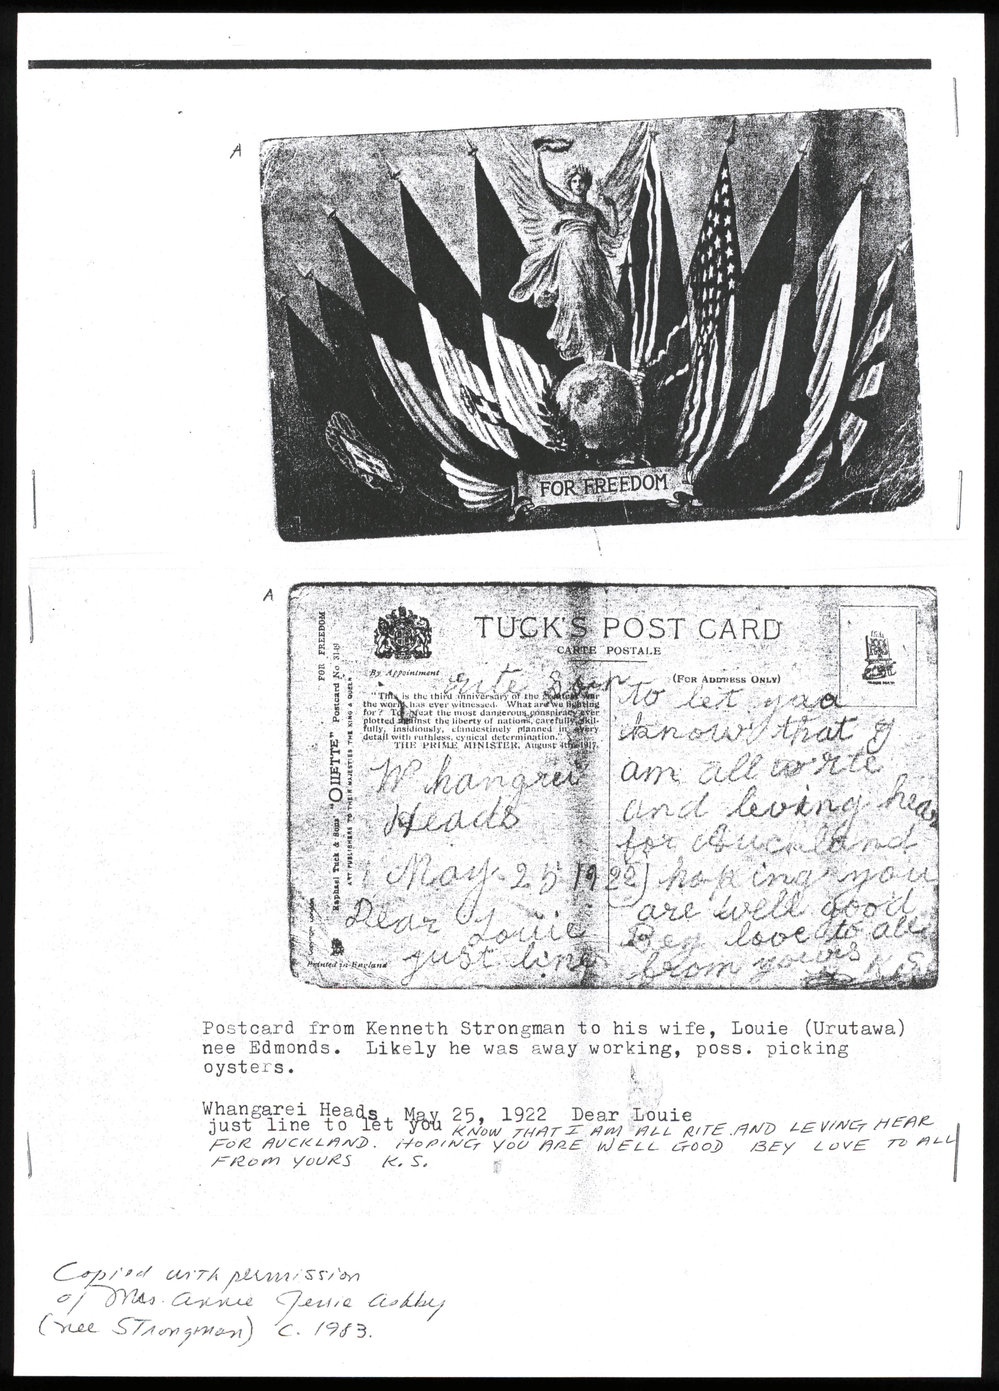 A
FOR FREEDOM
A
TUCK'S POST CARD
CARTE POSTALE
By Appointment
(FOR ADDRESS ONLY)
FOR FREEDOM
Raphael Tuck & Sons' "OILETTE" Postcard No 3149
ART PUBLISHERS TO THEIR MAJESTIES THE KING & QUEEN
Printed in England
rite soon
"This is the third anniversary of the greatest war
the world has ever witnessed. What are we fighting
for? To defeat the most dangerous conspiracy ever
plotted against the liberty of nations, carefully, skil-
fully, insidiously, clandestinely planned in every
detail with ruthless, cynical determination."
THE PRIME MINISTER, August 4th, 1917.
Whangrei
Heads
May 25 1922
Dear Louie
just line
to let you
know that I
am all write
and leving hear
for Auckland
hoping you
are well good
Bey love to all
from yours K.S.
Postcard from Kenneth Strongman to his wife, Louie (Urutawa)
nee Edmonds. Likely he was away working, poss. picking
oysters.
Whangarei Heads May 25, 1922 Dear Louie
just line to let you KNOW THAT I AM ALL RITE. AND LEVING HEAR
FOR AUCKLAND. HOPING YOU ARE WELL GOOD BEY LOVE TO ALL
FROM YOURS K.S.
Copied with permission
of Mrs. Annie Jessie Ashby
(nee Strongman) c. 1983.